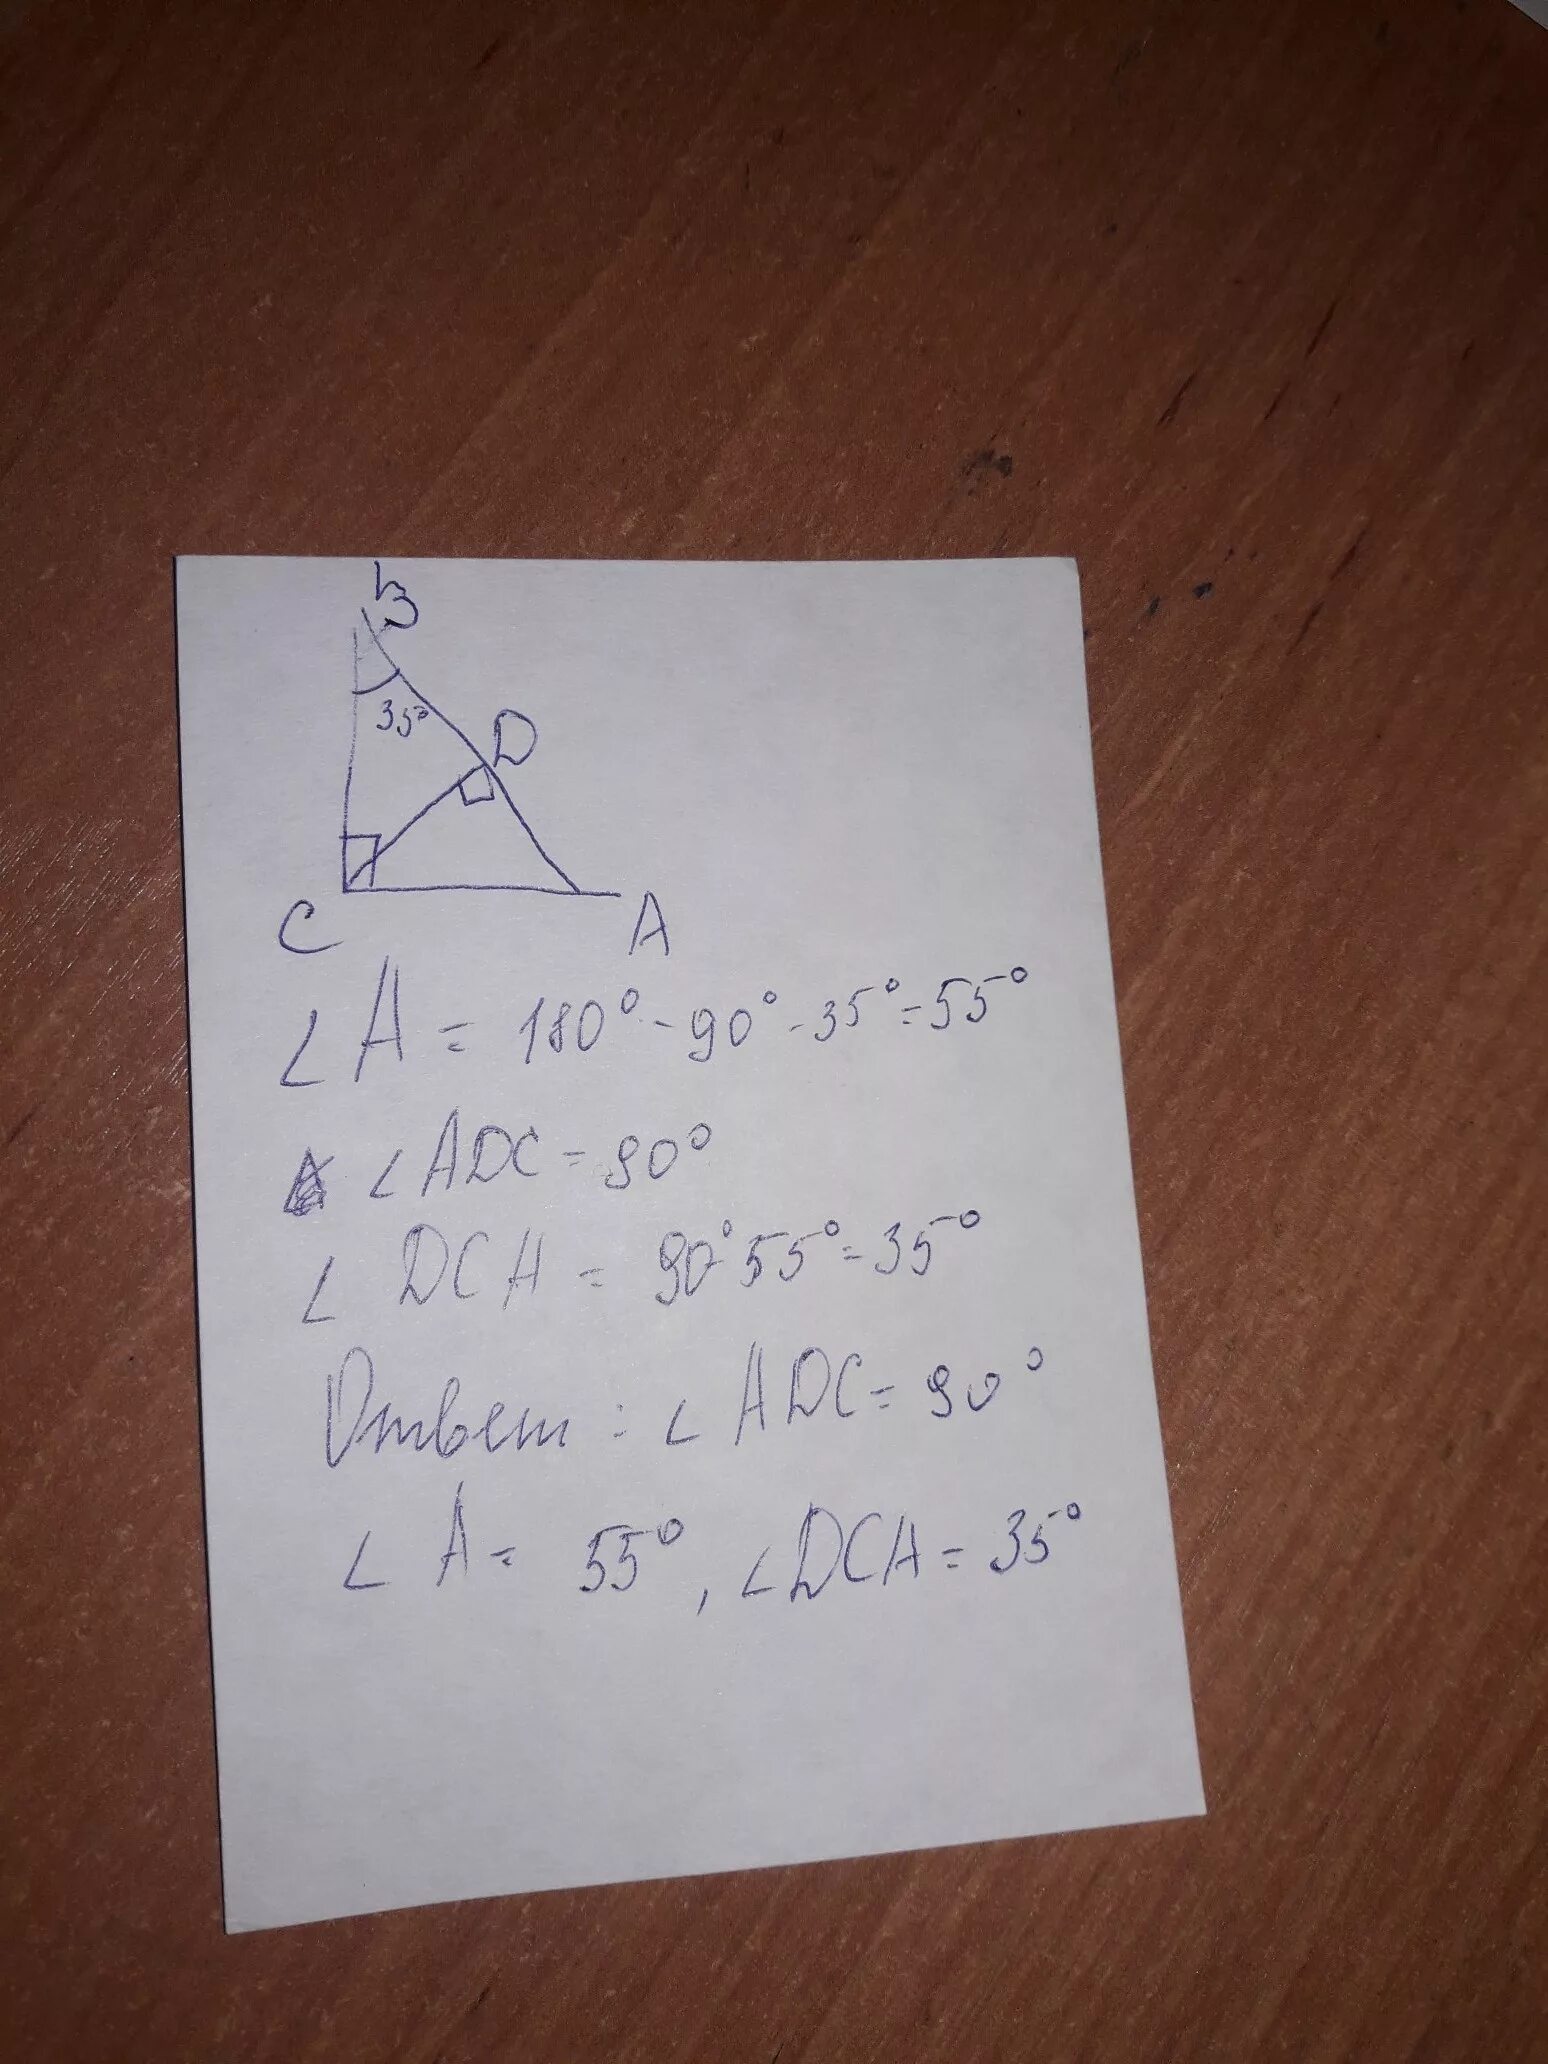 B
35°
D
C
A
∠A = 180° - 90° - 35° = 55°
∠ADC = 90°
∠DCA = 90° 55° = 35°
Ответ: ∠ADC = 90°
∠A = 55°, ∠DCA = 35°